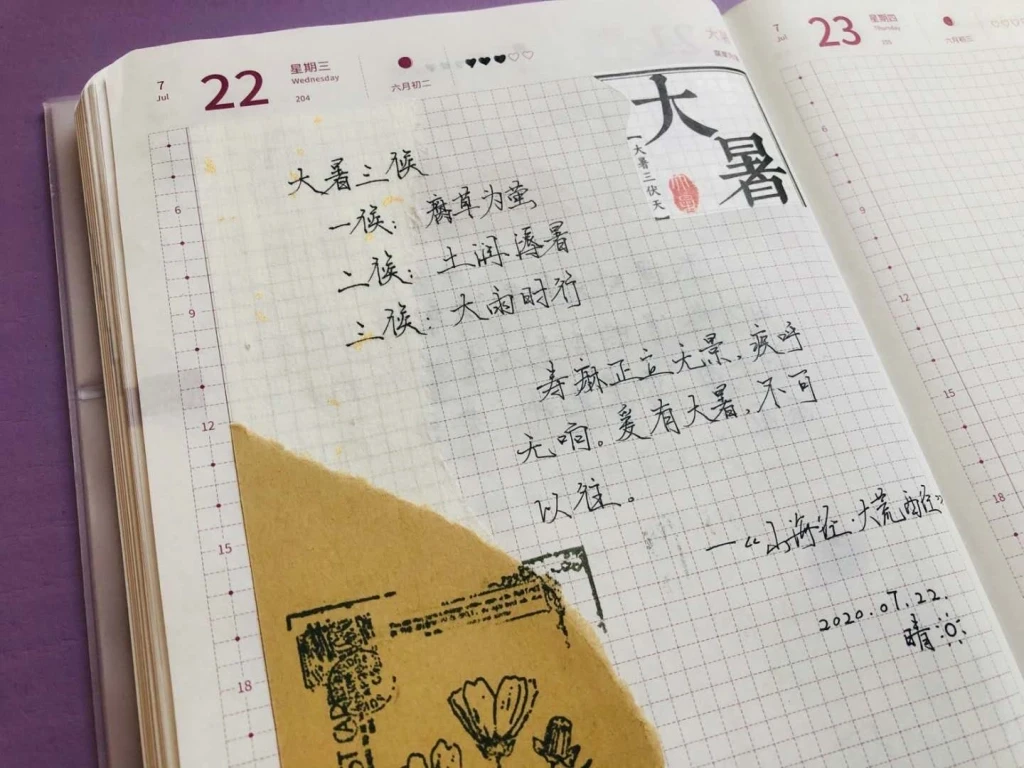 7 Jul 22 星期三 Wednesday 204 六月初二
大暑
【大暑三伏天】
大暑三候
一候：腐草为萤
二候：土润溽暑
三候：大雨时行
寿麻正立无景，疾呼
无响。爰有大暑，不可
以往。
—《山海经·大荒西经》
2020.07.22.
晴
6
9
12
15
18
7 Jul 23 星期四 Thursday 205 六月初三
6
9
12
15
18